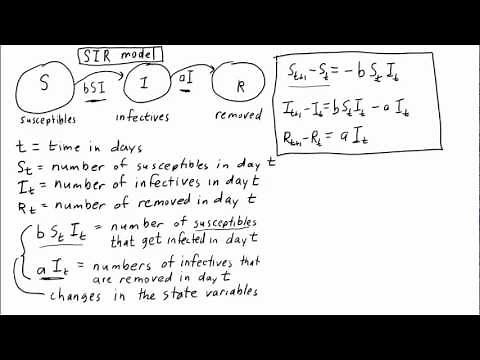 SIR model
S
bSI
I
aI
R
susceptibles
infectives
removed
t = time in days
S_t = number of susceptibles in day t
I_t = number of infectives in day t
R_t = number of removed in day t
b S_t I_t = number of susceptibles
that get infected in day t
a I_t = numbers of infectives that
are removed in day t
changes in the state variables
S_{t+1} - S_t = -b S_t I_t
I_{t+1} - I_t = b S_t I_t - a I_t
R_{t+1} - R_t = a I_t